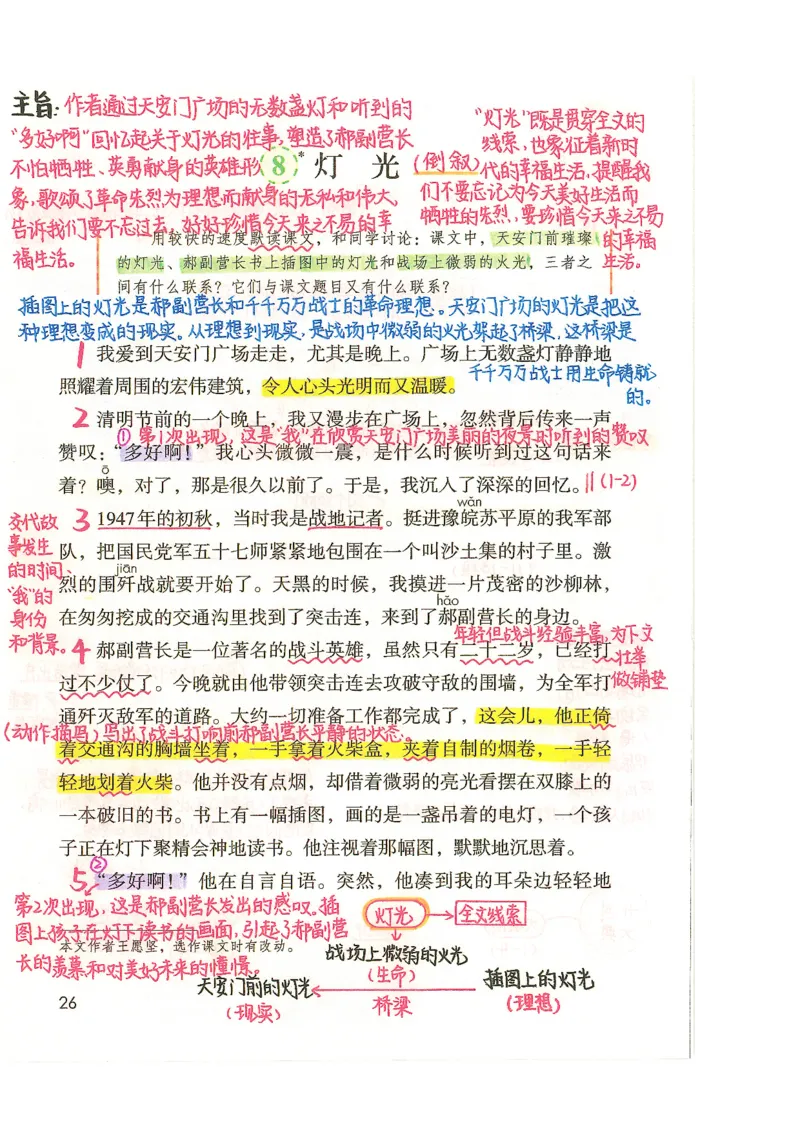 主旨:作者通过天安门广场的无数盏灯和听到的
"多好啊"回忆起关于灯光的往事,塑造了郝副营长
不怕牺牲、英勇献身的英雄形
象,歌颂了革命先烈为理想而献身的无私和伟大。
告诉我们要不忘过去,好好珍惜今天来之不易的幸
福生活。
8* 灯 光
(倒叙)
"灯光"既是贯穿全文的
线索,也象征着新时
代的幸福生活,提醒我
们不要忘记为今天美好生活而
牺牲的先烈,要珍惜今天来之不易
的幸福
生活。
用较快的速度默读课文,和同学讨论:课文中,天安门前璀璨
的灯光、郝副营长书上插图中的灯光和战场上微弱的火光,三者之
间有什么联系?它们与课文题目又有什么联系?
插图上的灯光是郝副营长和千千万万战士的革命理想。天安门广场的灯光是把这
种理想变成的现实。从理想到现实,是战场中微弱的火光架起了桥梁,这桥梁是
千千万万战士用生命铸就
的。
1 我爱到天安门广场走走,尤其是晚上。广场上无数盏灯静静地
照耀着周围的宏伟建筑,令人心头光明而又温暖。
2 清明节前的一个晚上,我又漫步在广场上,忽然背后传来一声
①第1次出现,这是"我"在欣赏天安门广场美丽的夜景时听到的赞叹
赞叹:“多好啊!”我心头微微一震,是什么时候听到过这句话来
ō
着?噢,对了,那是很久以前了。于是,我沉入了深深的回忆。‖(1-2)
wǎn
3 1947年的初秋,当时我是战地记者。挺进豫皖苏平原的我军部
队,把国民党军五十七师紧紧地包围在一个叫沙土集的村子里。激
jiān
烈的围歼战就要开始了。天黑的时候,我摸进一片茂密的沙柳林,
hǎo
在匆匆挖成的交通沟里找到了突击连,来到了郝副营长的身边。
交代故
事发生
的时间、
"我"的
身份
和背景。
年轻但战斗经验丰富,为下文
壮举
做铺垫
4 郝副营长是一位著名的战斗英雄,虽然只有二十二岁,已经打
过不少仗了。今晚就由他带领突击连去攻破守敌的围墙,为全军打
通歼灭敌军的道路。大约一切准备工作都完成了,这会儿,他正倚
(动作描写)写出了战斗打响前郝副营长平静的状态。
着交通沟的胸墙坐着,一手拿着火柴盒,夹着自制的烟卷,一手轻
轻地划着火柴。他并没有点烟,却借着微弱的亮光看摆在双膝上的
一本破旧的书。书上有一幅插图,画的是一盏吊着的电灯,一个孩
子正在灯下聚精会神地读书。他注视着那幅图,默默地沉思着。
②
5 “多好啊!”他在自言自语。突然,他凑到我的耳朵边轻轻地
第2次出现,这是郝副营长发出的感叹。插
图上孩子在灯下读书的画面,引起了郝副营
长的羡慕和对美好未来的憧憬。
本文作者王愿坚,选作课文时有改动。
灯光 → 全文线索
战场上微弱的火光
(生命)
天安门前的灯光
(现实)
桥梁
插图上的灯光
(理想)
26